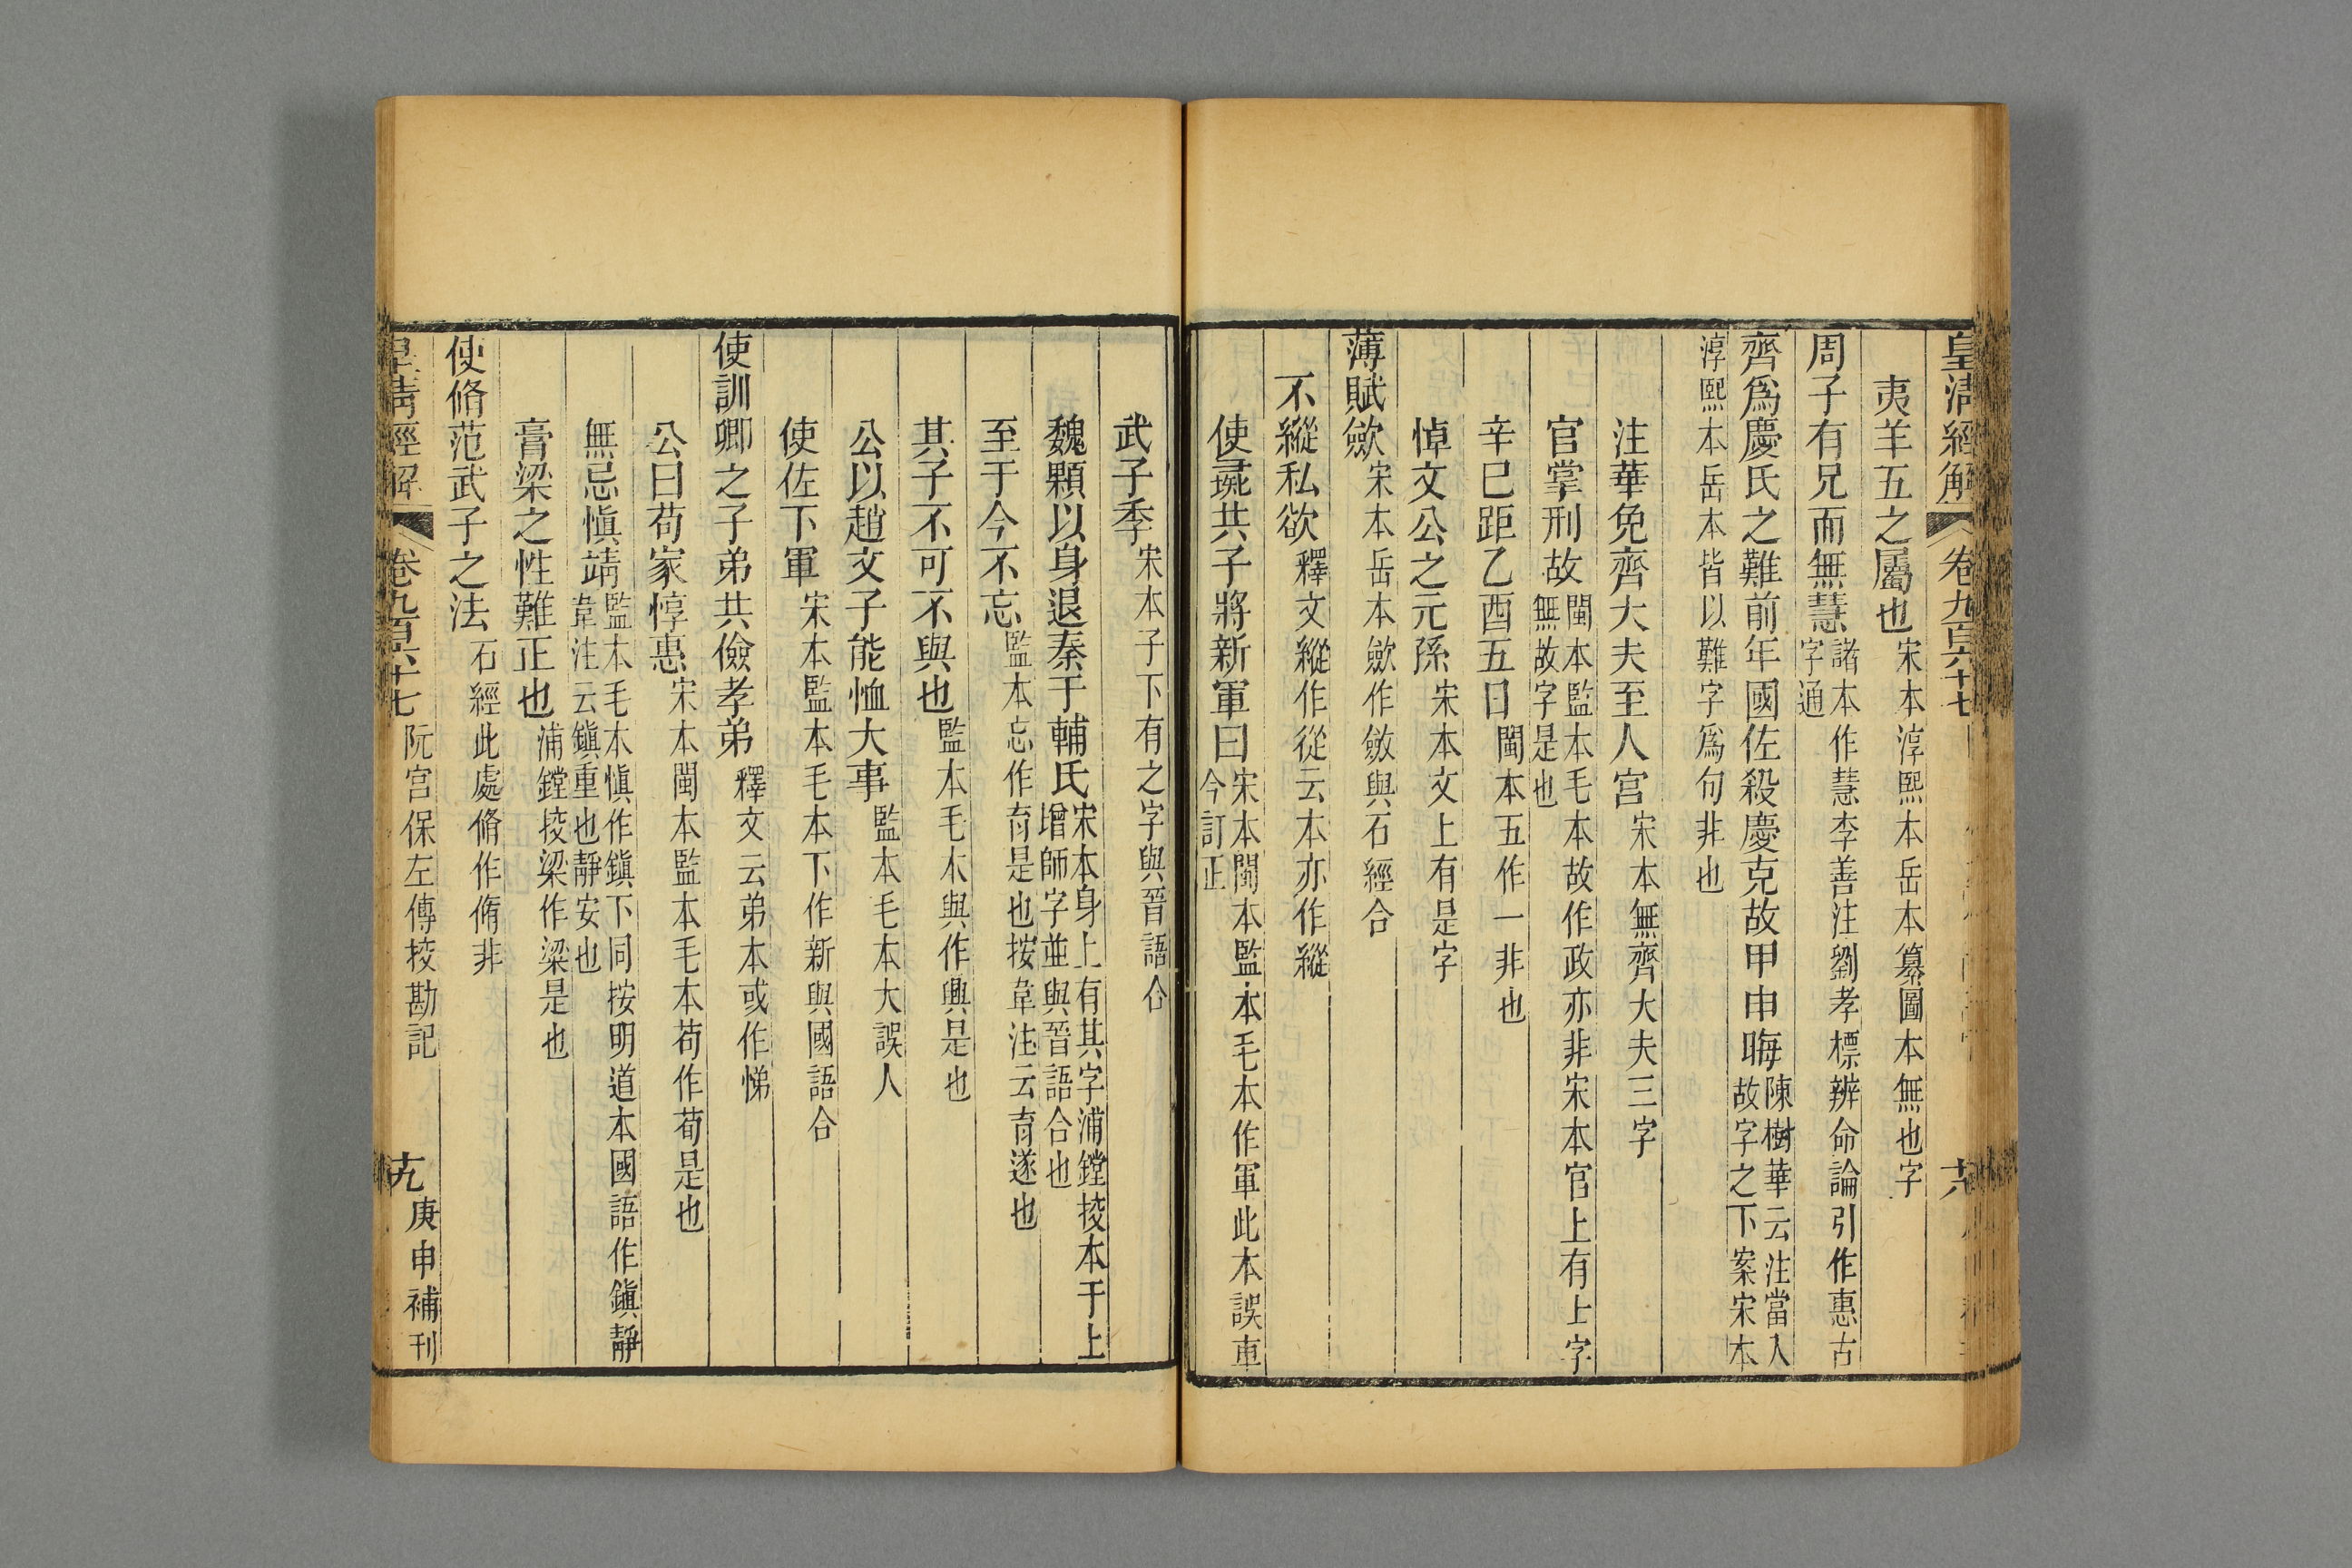 皇清經解 卷九百六十七 大
夷羊五之屬也宋本淳熙本岳本纂圖本無也字
周子有兄而無慧諸本作慧李善注劉孝標辨命論引作惠古字通
齊爲慶氏之難前年國佐殺慶克故甲申晦陳樹華云注當入故字之下案宋本
淳熙本岳本皆以難字爲句非也
注華免齊大夫至人宮宋本無齊大夫三字
官掌刑故閩本監本毛本故作政亦非宋本官上有上字無故字是也
辛巳距乙酉五日閩本五作一非也
悼文公之元孫宋本文上有是字
薄賦歛宋本岳本歛作斂與石經合
不縱私欲釋文縱作從云本亦作縱
使彘共子將新軍曰宋本閩本監本毛本作軍此本軍誤車今訂正
武子季宋本子下有之字與晉語合
魏顆以身退秦于輔氏宋本身上有其字浦鏜挍本于上增師字並與晉語合也
至于今不忘監本忘作育是也按韋注云育遂也
其子不可不與也監本毛本與作興是也
公以趙文子能恤大事監本毛本大誤人
使佐下軍宋本監本毛本下作新與國語合
使訓卿之子弟共儉孝弟釋文云弟本或作悌
公曰荀家惇惠宋本閩本監本毛本苟作荀是也
無忌愼靖監本毛本愼作鎭下同按明道本國語作鎭靜韋注云鎭重也靜安也
膏梁之性難正也浦鏜挍梁作粱是也
使脩范武子之法石經此處脩作脩非
皇清經解 卷九百六十七 阮宮保左傳挍勘記 十九 庚申補刊